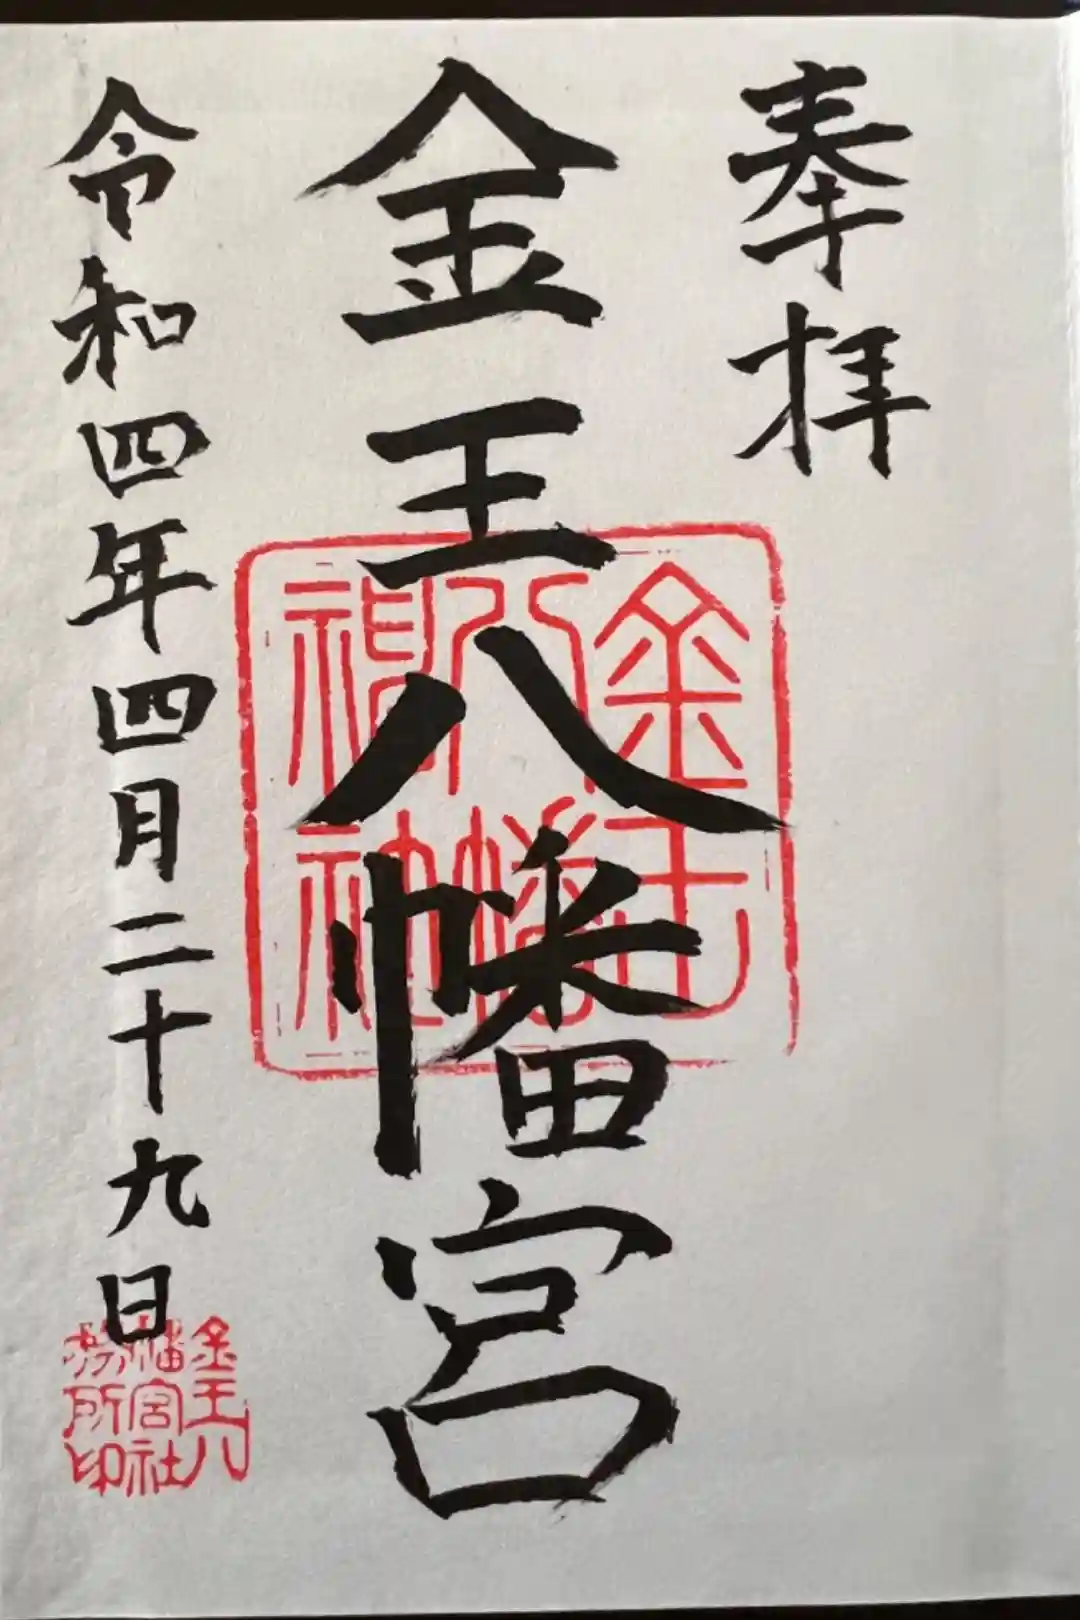 奉拝
金王八幡宮
令和四年四月二十九日
金王
八幡
神社
金王八
幡宮社
務所印